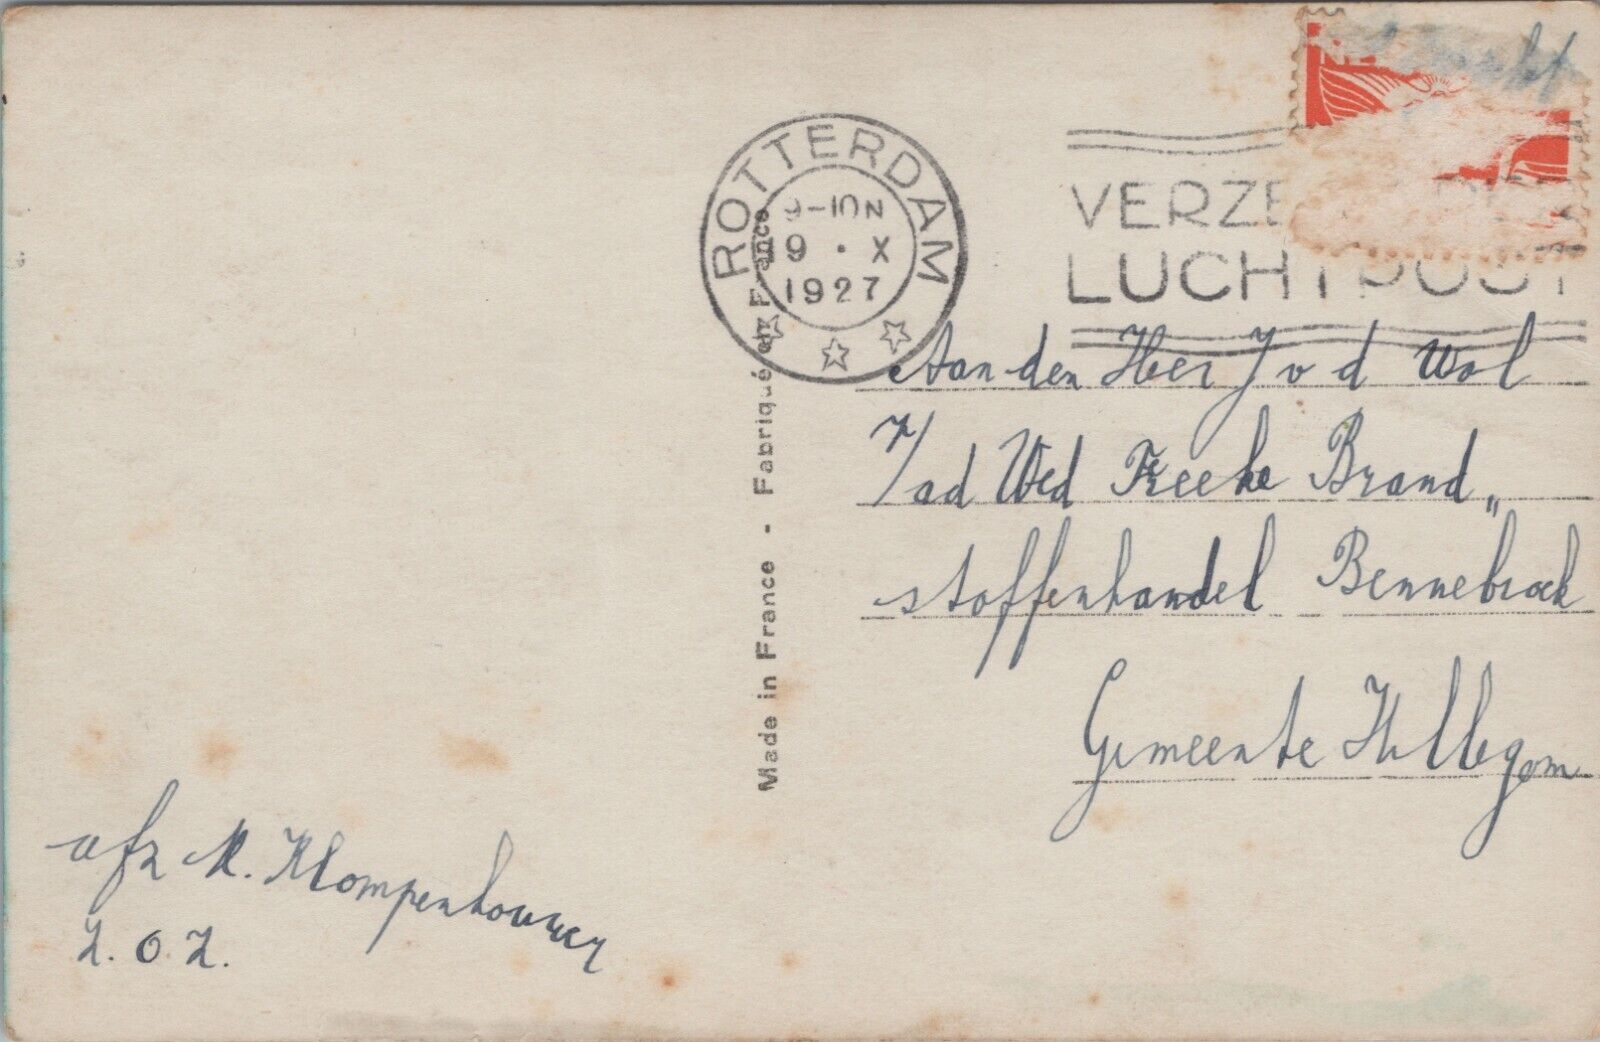 ROTTERDAM
9-10N
9 · X
1927
VERZE
LUCHTPOST
Aan den Heer J v d Wal
p/ad Wed Freeke Brand„
stoffenhandel Bennebroek
Gemeente Hillegom
Made in France - Fabriqué en France
afz M. Klompenhouwer
Z.O.Z.